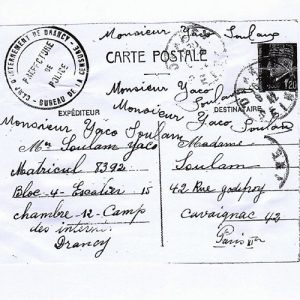 Monsieur Yaco Soulam
CAMP D'INTERNEMENT DE DRANCY
BUREAU DE LA CENSURE
PREFECTURE
DE
POLICE
CARTE POSTALE
1,20
Monsieur Yaco
Soulam
EXPÉDITEUR
Monsieur Yaco
DESTINATAIRE
Soulam
Monsieur Yaco Soulam
Mr Soulam Yaco
Matricul 8392
Bloc-4-Escalier 15
chambre 12-Camp
des internés
Drancy
Madame
Soulam
42 Rue godfroy
Cavaignac 42
Paris XIe